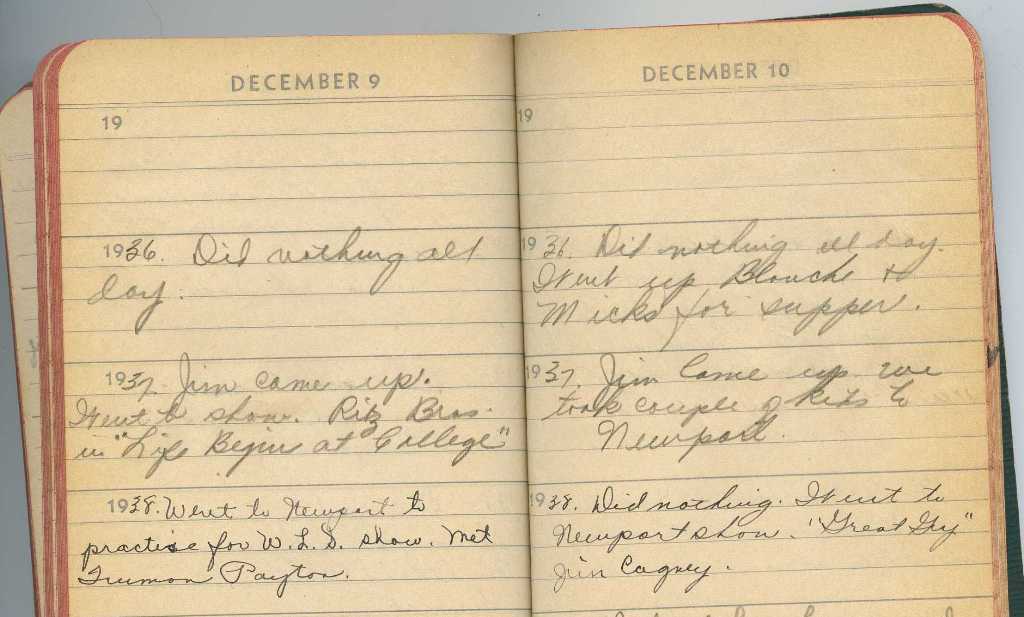 DECEMBER 9
19
1936. Did nothing all
day.
1937. Jim came up.
Went to show. Ritz Bros.
in "Life Begins at College"
1938. Went to Newport to
practise for W.L.S. show. Met
Truman Payton.
DECEMBER 10
19
1936. Did nothing all day.
Went up Blanch &
Micks for supper.
1937. Jim came up we
took couple of kids to
Newport.
1938. Did nothing. Went to
Newport show. "Great Guy"
Jim Cagney.